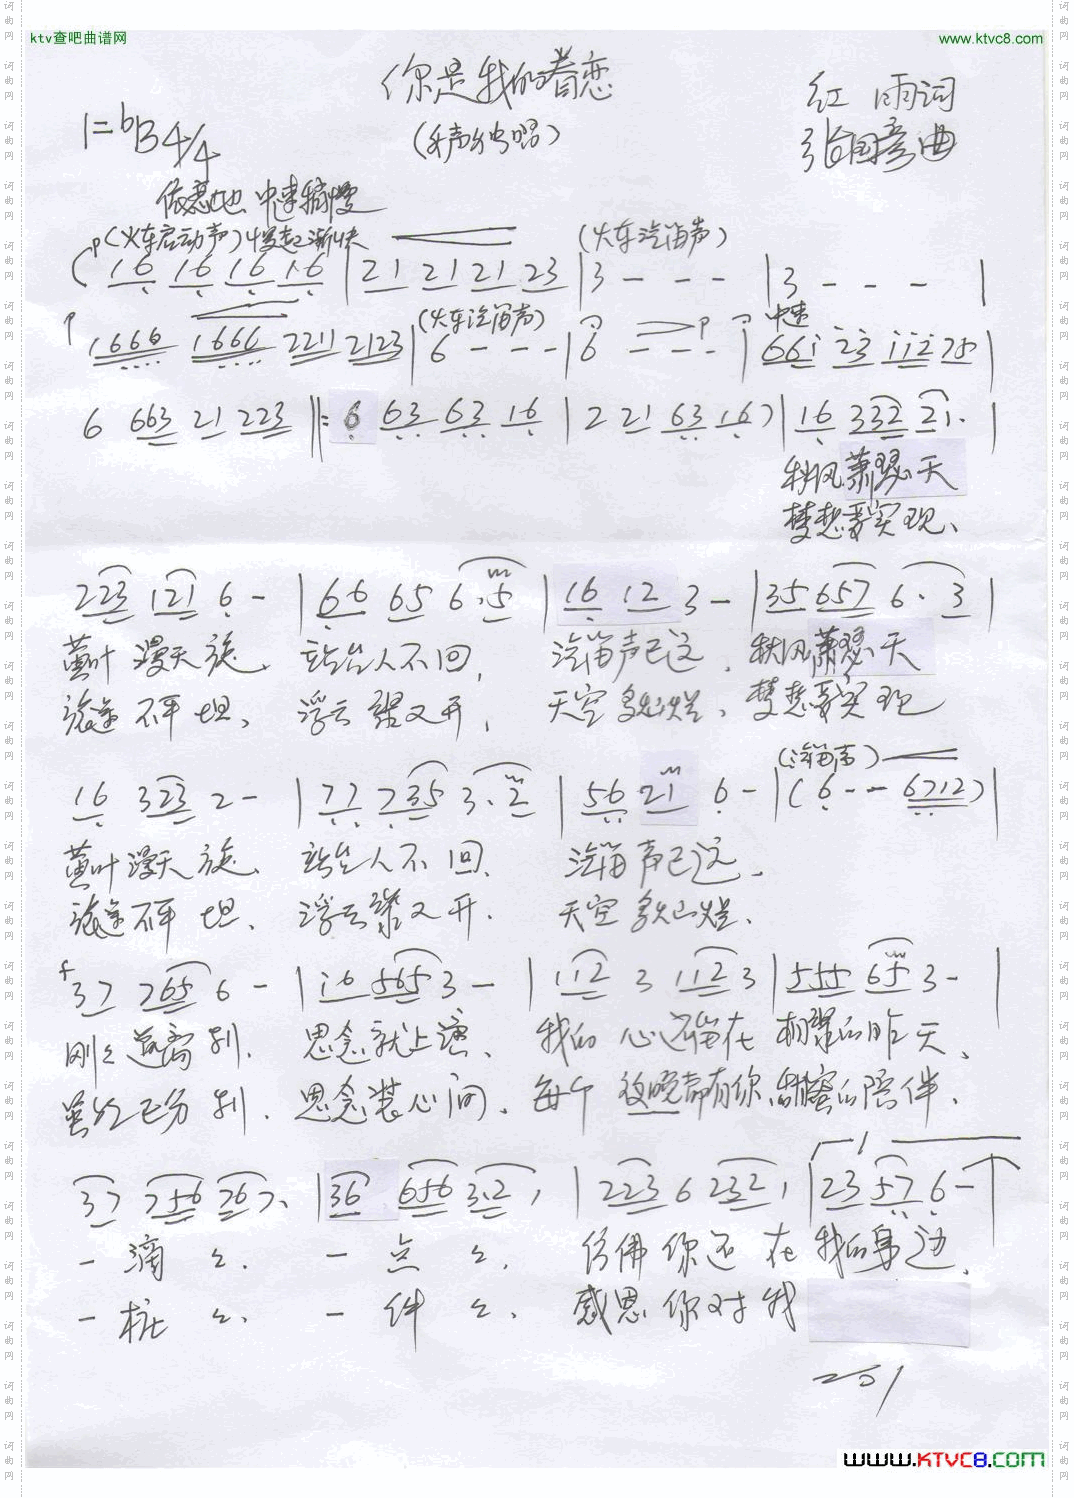 ktv查吧曲谱网
www.ktvc8.com
你是我的眷恋
红雨词
1=bB 4/4
张国彦曲
中速稍慢
P (火车启动声) 慢起渐快
(火车汽笛声)
(16 16 16 16 | 21 21 21 23 | 3 - - - | 3 - - - |
P
(火车汽笛声)
P
中速
1666 1666 2211 2123 | 6 - - - | 6 - - - | 661 23 112 75 |
6 663 21 223 ‖: 6 63 63 16 | 2 21 63 16) | 16 332 21. |
秋风萧瑟天
梦想要实现、
223 121 6 - | 66 65 6.5 | 16 12 3 - | 35 657 6. 3 |
黄叶漫天旋、站台人不回, 汽笛声已远, 秋风萧瑟天
旅途不平坦、浮云聚又开, 天空多灿烂、梦想要实现
(汽笛声)
16 323 2 - | 77 735 3.2 | 56 21 6 - | (6 - - 6712) |
黄叶漫天旋、站台人不回、汽笛声已远、
旅途不平坦、浮云聚又开、天空多灿烂、
f
37 765 6 - | i6 565 3 - | 112 3 112 3 | 555 65 3 - |
刚刚道离别、思念就上演、我的心还留在 相聚的昨天、
虽然已分别、思念装心间、每个夜晚都有你 甜蜜的陪伴、
37 756 767、| 36 656 3.2, | 223 6 232, | 23 57 6 - |
1
一滴々、一点々、仿佛你还在我的身边、
一桩々、一件々、感恩你对我
www.KTVC8.com